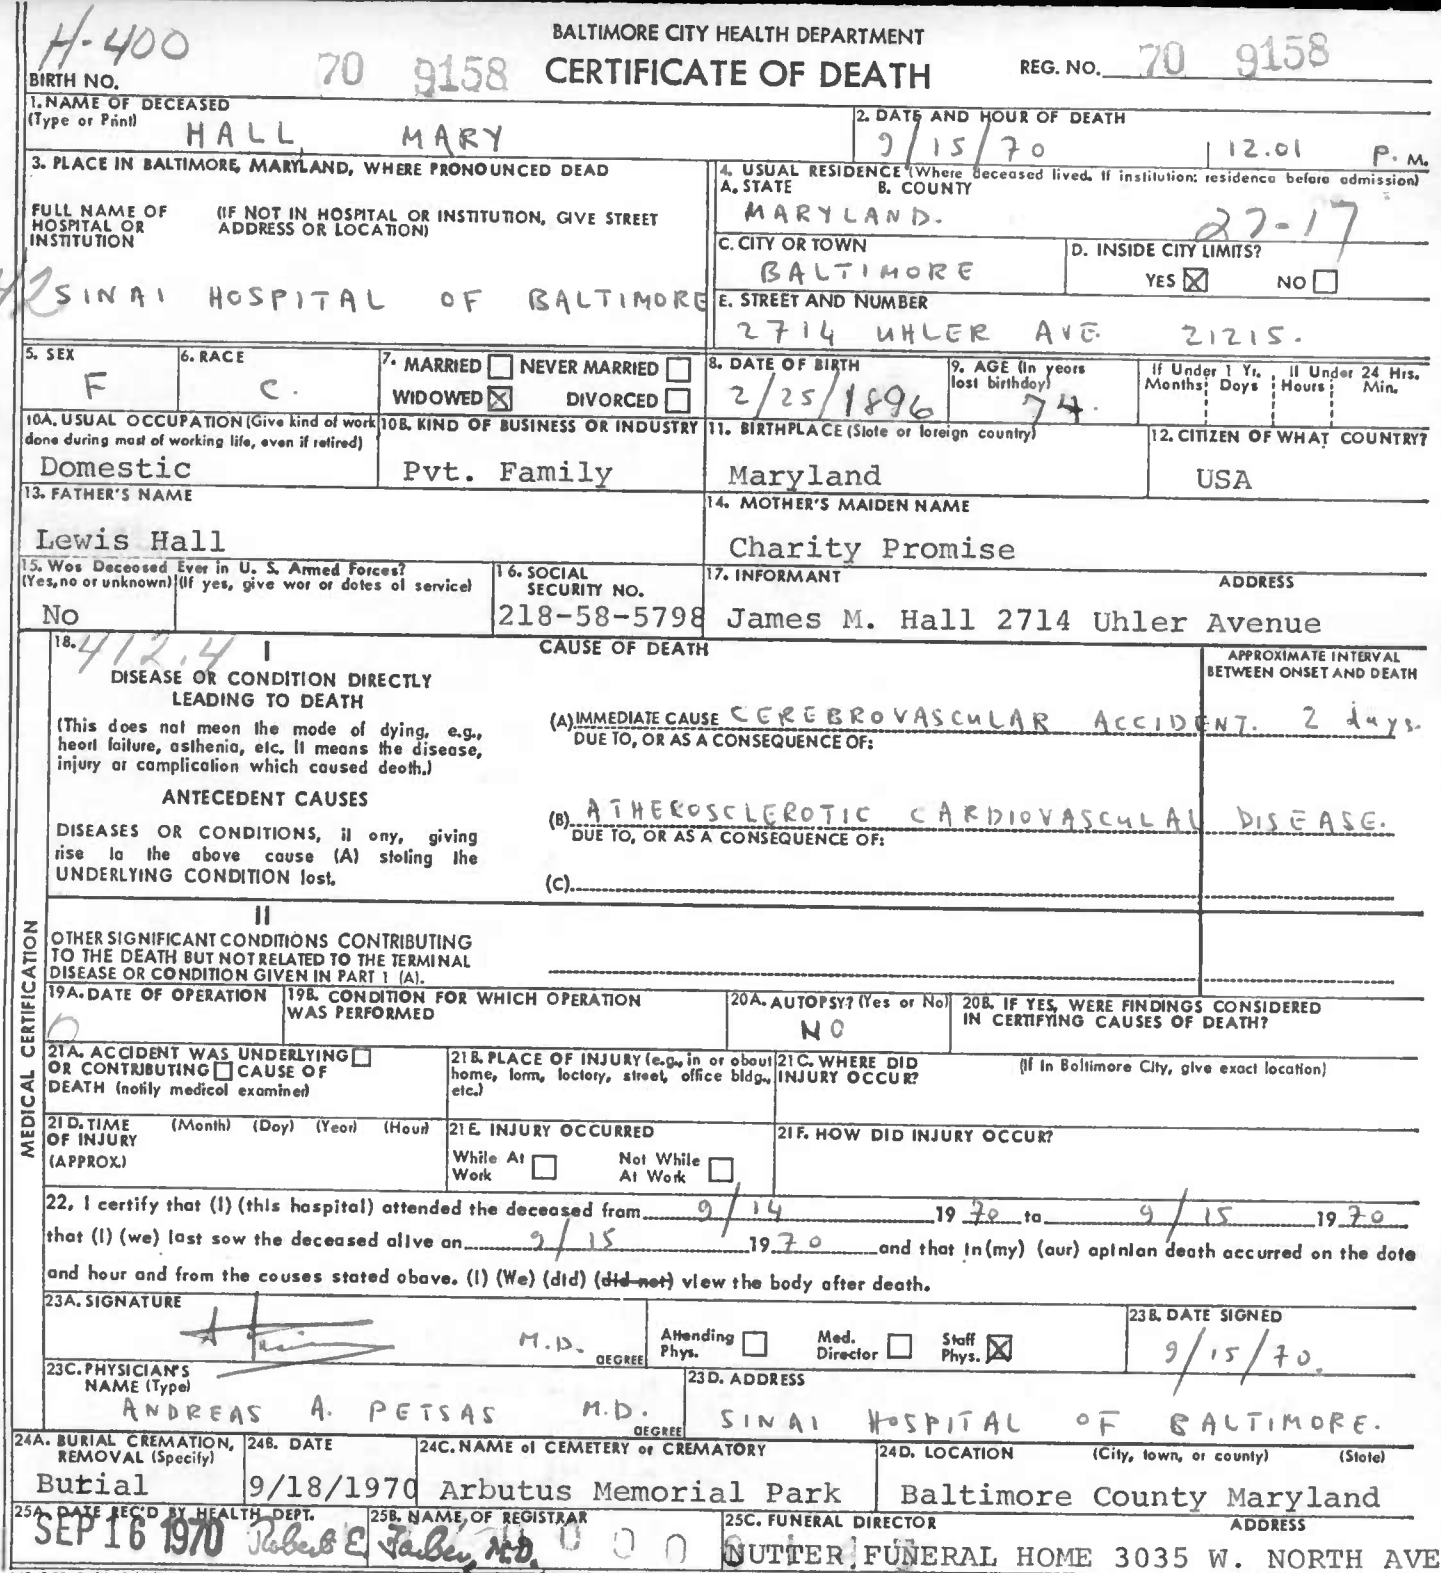 H-400
BALTIMORE CITY HEALTH DEPARTMENT
BIRTH NO. 70 9158 CERTIFICATE OF DEATH REG. NO. 70 9158
1. NAME OF DECEASED
(Type or Print) HALL, MARY
2. DATE AND HOUR OF DEATH
9/15/70 12.01 P. M.
3. PLACE IN BALTIMORE, MARYLAND, WHERE PRONOUNCED DEAD
FULL NAME OF HOSPITAL OR INSTITUTION
(IF NOT IN HOSPITAL OR INSTITUTION, GIVE STREET ADDRESS OR LOCATION)
42 SINAI HOSPITAL OF BALTIMORE
4. USUAL RESIDENCE (Where deceased lived. If institution: residence before admission)
A. STATE B. COUNTY
MARYLAND. 27-17
C. CITY OR TOWN
BALTIMORE
D. INSIDE CITY LIMITS?
YES ☒ NO ☐
E. STREET AND NUMBER
2714 UHLER AVE 21215.
5. SEX
F
6. RACE
C.
7. MARRIED ☐ NEVER MARRIED ☐
WIDOWED ☒ DIVORCED ☐
8. DATE OF BIRTH
2/25/1896
9. AGE (In years last birthday)
74.
If Under 1 Yr. Months Days
If Under 24 Hrs. Hours Min.
10A. USUAL OCCUPATION (Give kind of work done during most of working life, even if retired)
Domestic
10B. KIND OF BUSINESS OR INDUSTRY
Pvt. Family
11. BIRTHPLACE (State or foreign country)
Maryland
12. CITIZEN OF WHAT COUNTRY?
USA
13. FATHER'S NAME
Lewis Hall
14. MOTHER'S MAIDEN NAME
Charity Promise
15. Was Deceased Ever in U. S. Armed Forces?
(Yes, no or unknown) (If yes, give war or dates of service)
No
16. SOCIAL SECURITY NO.
218-58-5798
17. INFORMANT ADDRESS
James M. Hall 2714 Uhler Avenue
MEDICAL CERTIFICATION
18. 412.4 I
CAUSE OF DEATH
APPROXIMATE INTERVAL BETWEEN ONSET AND DEATH
DISEASE OR CONDITION DIRECTLY LEADING TO DEATH
(This does not mean the mode of dying, e.g., heart failure, asthenia, etc. It means the disease, injury or complication which caused death.)
(A) IMMEDIATE CAUSE CEREBROVASCULAR ACCIDENT. 2 days.
DUE TO, OR AS A CONSEQUENCE OF:
ANTECEDENT CAUSES
DISEASES OR CONDITIONS, if any, giving rise to the above cause (A) stating the UNDERLYING CONDITION last.
(B) ATHEROSCLEROTIC CARDIOVASCULAR DISEASE.
DUE TO, OR AS A CONSEQUENCE OF:
(C)
II
OTHER SIGNIFICANT CONDITIONS CONTRIBUTING TO THE DEATH BUT NOT RELATED TO THE TERMINAL DISEASE OR CONDITION GIVEN IN PART 1 (A).
19A. DATE OF OPERATION
0
19B. CONDITION FOR WHICH OPERATION WAS PERFORMED
20A. AUTOPSY? (Yes or No)
NO
20B. IF YES, WERE FINDINGS CONSIDERED IN CERTIFYING CAUSES OF DEATH?
21A. ACCIDENT WAS UNDERLYING ☐ OR CONTRIBUTING ☐ CAUSE OF DEATH (notify medical examiner)
21B. PLACE OF INJURY (e.g., in or about home, farm, factory, street, office bldg., etc.)
21C. WHERE DID INJURY OCCUR? (If in Baltimore City, give exact location)
21D. TIME OF INJURY (APPROX.) (Month) (Day) (Year) (Hour)
21E. INJURY OCCURRED
While At Work ☐ Not While At Work ☐
21F. HOW DID INJURY OCCUR?
22. I certify that (I) (this hospital) attended the deceased from 9/14 19 70 to 9/15 19 70
that (I) (we) last saw the deceased alive on 9/15 19 70 and that in (my) (our) opinion death occurred on the date
and hour and from the causes stated above. (I) (We) (did) (did not) view the body after death.
23A. SIGNATURE
M.D. DEGREE
Attending Phys. ☐ Med. Director ☐ Staff Phys. ☒
23B. DATE SIGNED
9/15/70.
23C. PHYSICIAN'S NAME (Type)
ANDREAS A. PETSAS M.D. DEGREE
23D. ADDRESS
SINAI HOSPITAL OF BALTIMORE.
24A. BURIAL CREMATION, REMOVAL (Specify)
Burial
24B. DATE
9/18/1970
24C. NAME of CEMETERY or CREMATORY
Arbutus Memorial Park
24D. LOCATION (City, town, or county) (State)
Baltimore County Maryland
25A. DATE REC'D BY HEALTH DEPT.
SEP 16 1970
25B. NAME OF REGISTRAR
Robert E. Farber, M.D.
25C. FUNERAL DIRECTOR ADDRESS
NUTTER FUNERAL HOME 3035 W. NORTH AVE